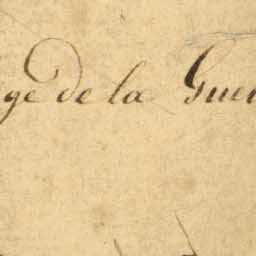 ge de la Gue